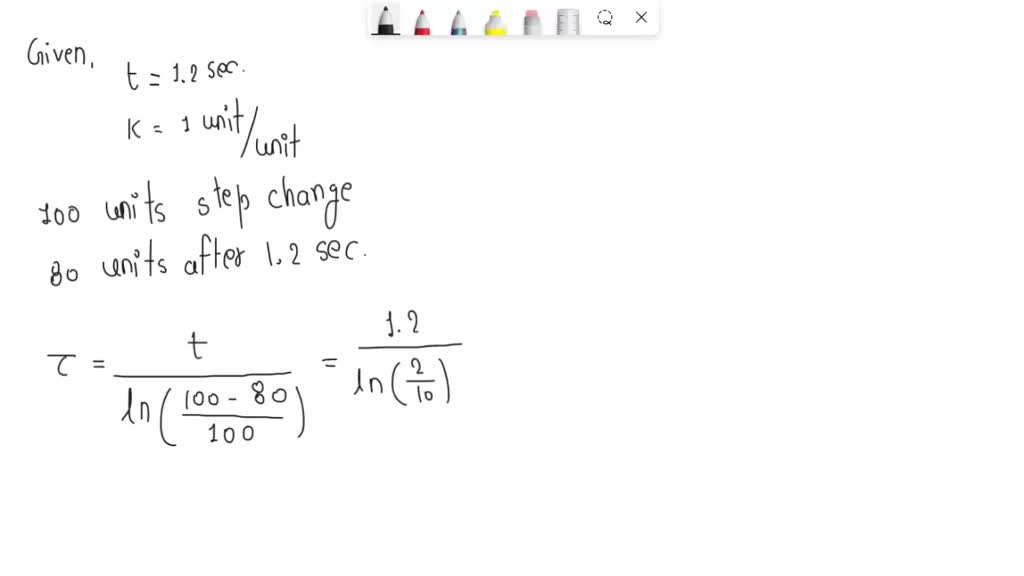 Given,
t = 1.2 sec.
K = 1 unit/unit
100 units step change
80 units after 1.2 sec.
τ = t / ln((100 - 80)/100) = 1.2 / ln(2/10)